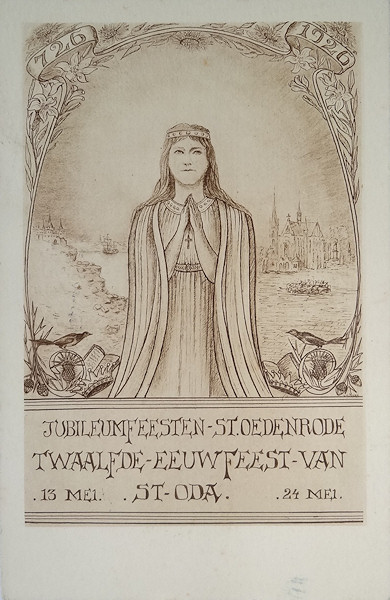 726 1926
JUBILEUMFEESTEN-ST.OEDENRODE
TWAALFDE-EEUWFEEST-VAN
.13 MEI. .ST-ODA. .24 MEI.